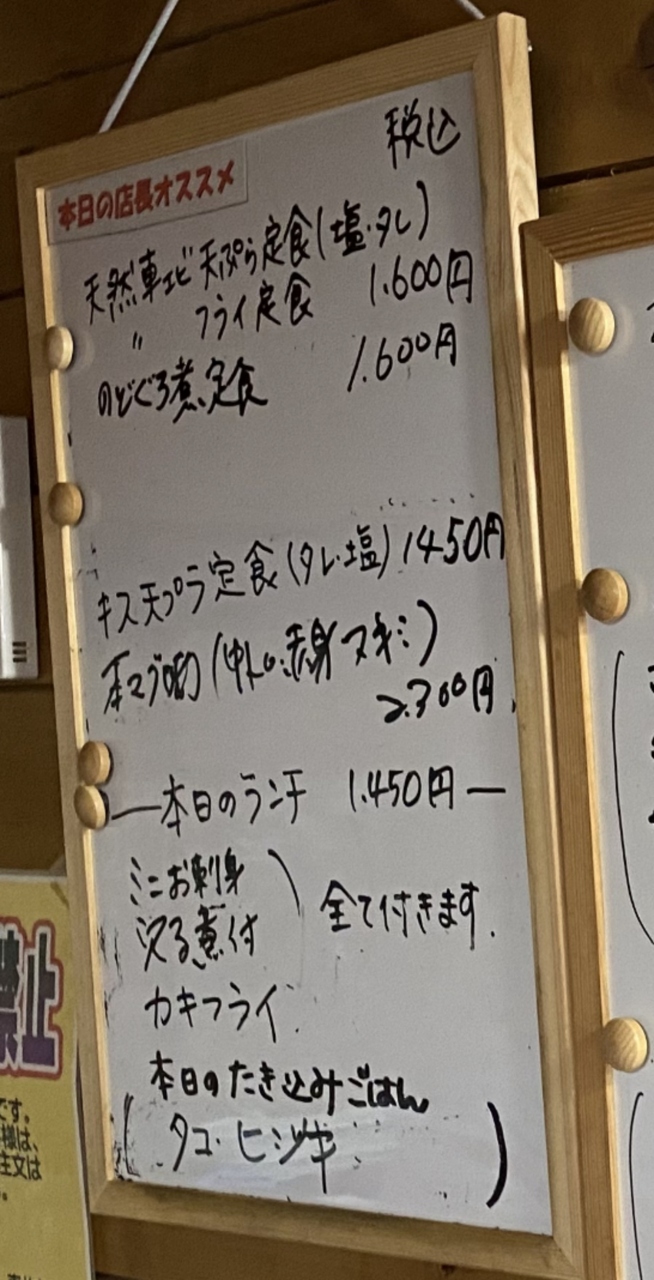 税込
本日の店長オススメ
天然車エビ天ぷら定食(塩・タレ)
〃 フライ定食 1.600円
のどぐろ煮定食 1.600円
キス天プラ定食(タレ・塩) 1450円
本マグロ (中トロ・赤身 スキミ)
2.300円
—本日のランチ 1.450円—
ミニお刺身
煮付 全て付きます.
カキフライ
本日のたき込みごはん
(タコ・ヒジキ)
禁止
です。
様は、
注文は